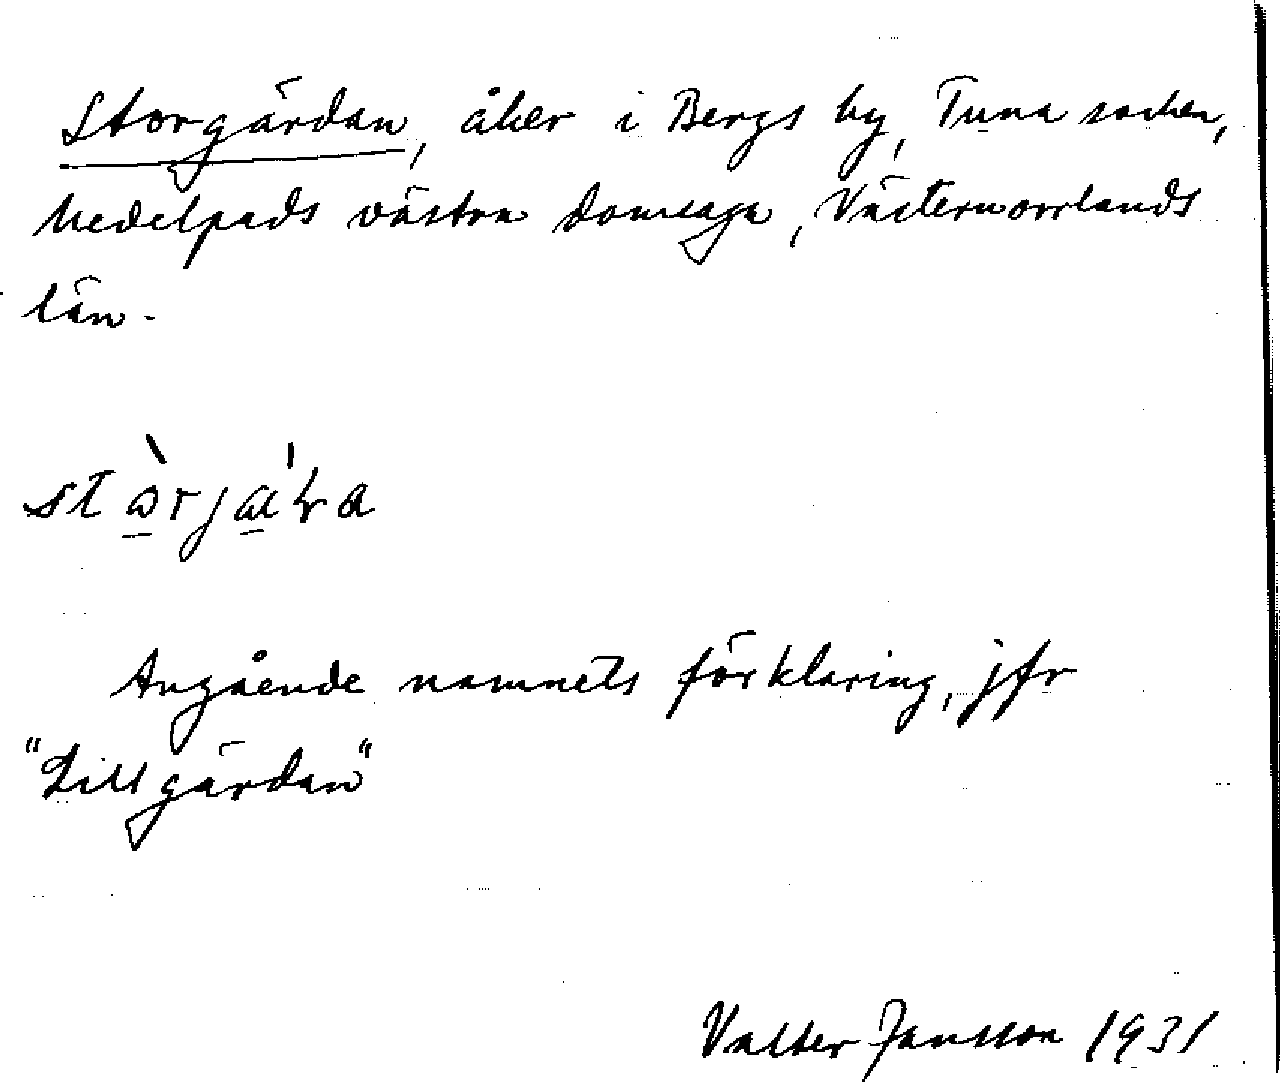 Storgärdan, åker i Bergs by, Tuna socken,
Medelpads västra domsaga, Västernorrlands
län.
Angående namnets förklaring, jfr
"Lillgärdan"
Valter Jansson 1931